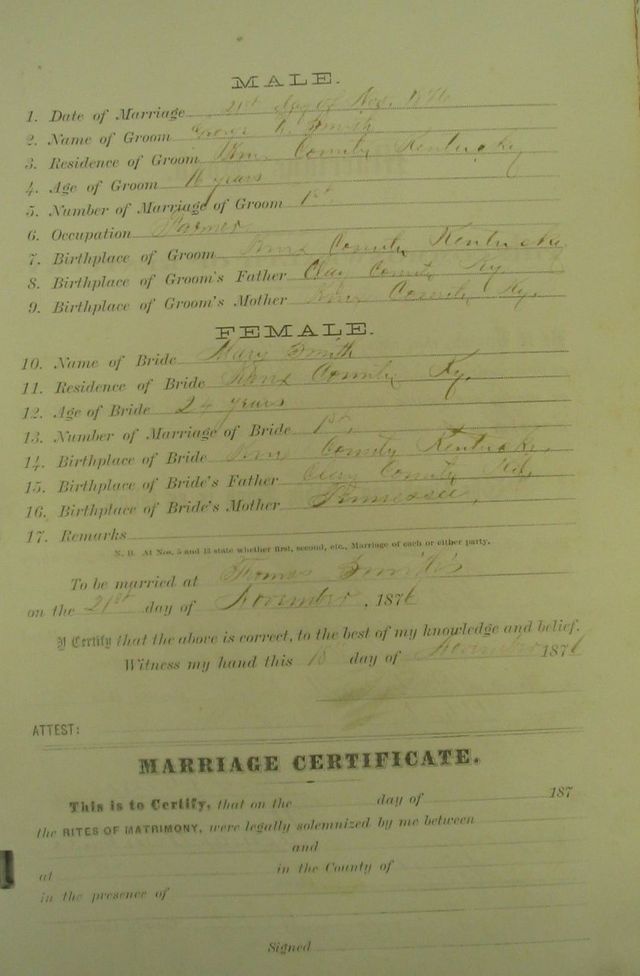 MALE.
1. Date of Marriage 21st day of Nov. 1876
2. Name of Groom Smith
3. Residence of Groom Knox County Kentucky
4. Age of Groom 16 years
5. Number of Marriage of Groom 1st
6. Occupation Farmer
7. Birthplace of Groom Knox County Kentucky
8. Birthplace of Groom's Father Clay County Ky.
9. Birthplace of Groom's Mother Knox County Ky.
FEMALE.
10. Name of Bride Mary Smith
11. Residence of Bride Knox County Ky.
12. Age of Bride 24 years
13. Number of Marriage of Bride 1st.
14. Birthplace of Bride Knox County Kentucky.
15. Birthplace of Bride's Father Clay County
16. Birthplace of Bride's Mother Tennessee.
17. Remarks
N. B. At Nos. 5 and 13 state whether first, second, etc., Marriage of each or either party.
To be married at Thomas Smith's
on the 21st day of November, 1876
I Certify that the above is correct, to the best of my knowledge and belief.
Witness my hand this 18 day of November 1876
ATTEST:
MARRIAGE CERTIFICATE.
This is to Certify, that on the day of 187
the RITES OF MATRIMONY, were legally solemnized by me between
and
at in the County of
in the presence of
Signed